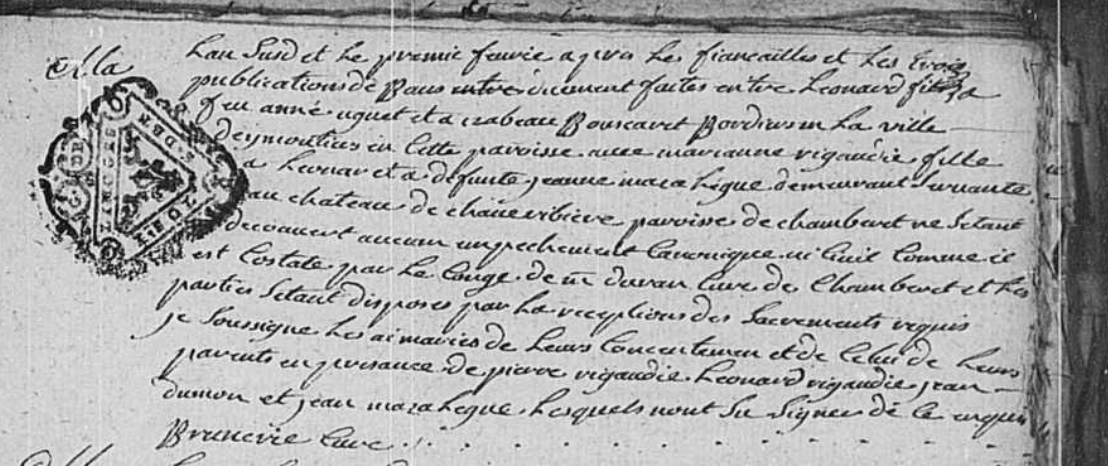 Lan susd et le premie fevrie apres les fiancailles et les trois
publications de Bans entre duement faites entre Leonard fils a
feu anné uguet et a izabeau Bouscavet Bordiers en la ville
deymoutiers en cette paroisse avec marianne rigaudie fille
a Leonard et a defunte jeanne mazaleigue demeurant servante
au chateau de paroisse de chamberet ne setant
decouvert aucun empechement Canonique ni Civil Comme il
est Costate par le Congé de mr Curé de Chamberet et les
parties setant disposes par la receptions des Sacrements requis
je soussigne les ai mariés de leurs Concentemen et de Celui de Leurs
parents en presance de pierre rigaudie Leonard rigaudie jean
dumon et jean mazaleigue Lesquels nont su signer de ce enquis
Brunerie Curé